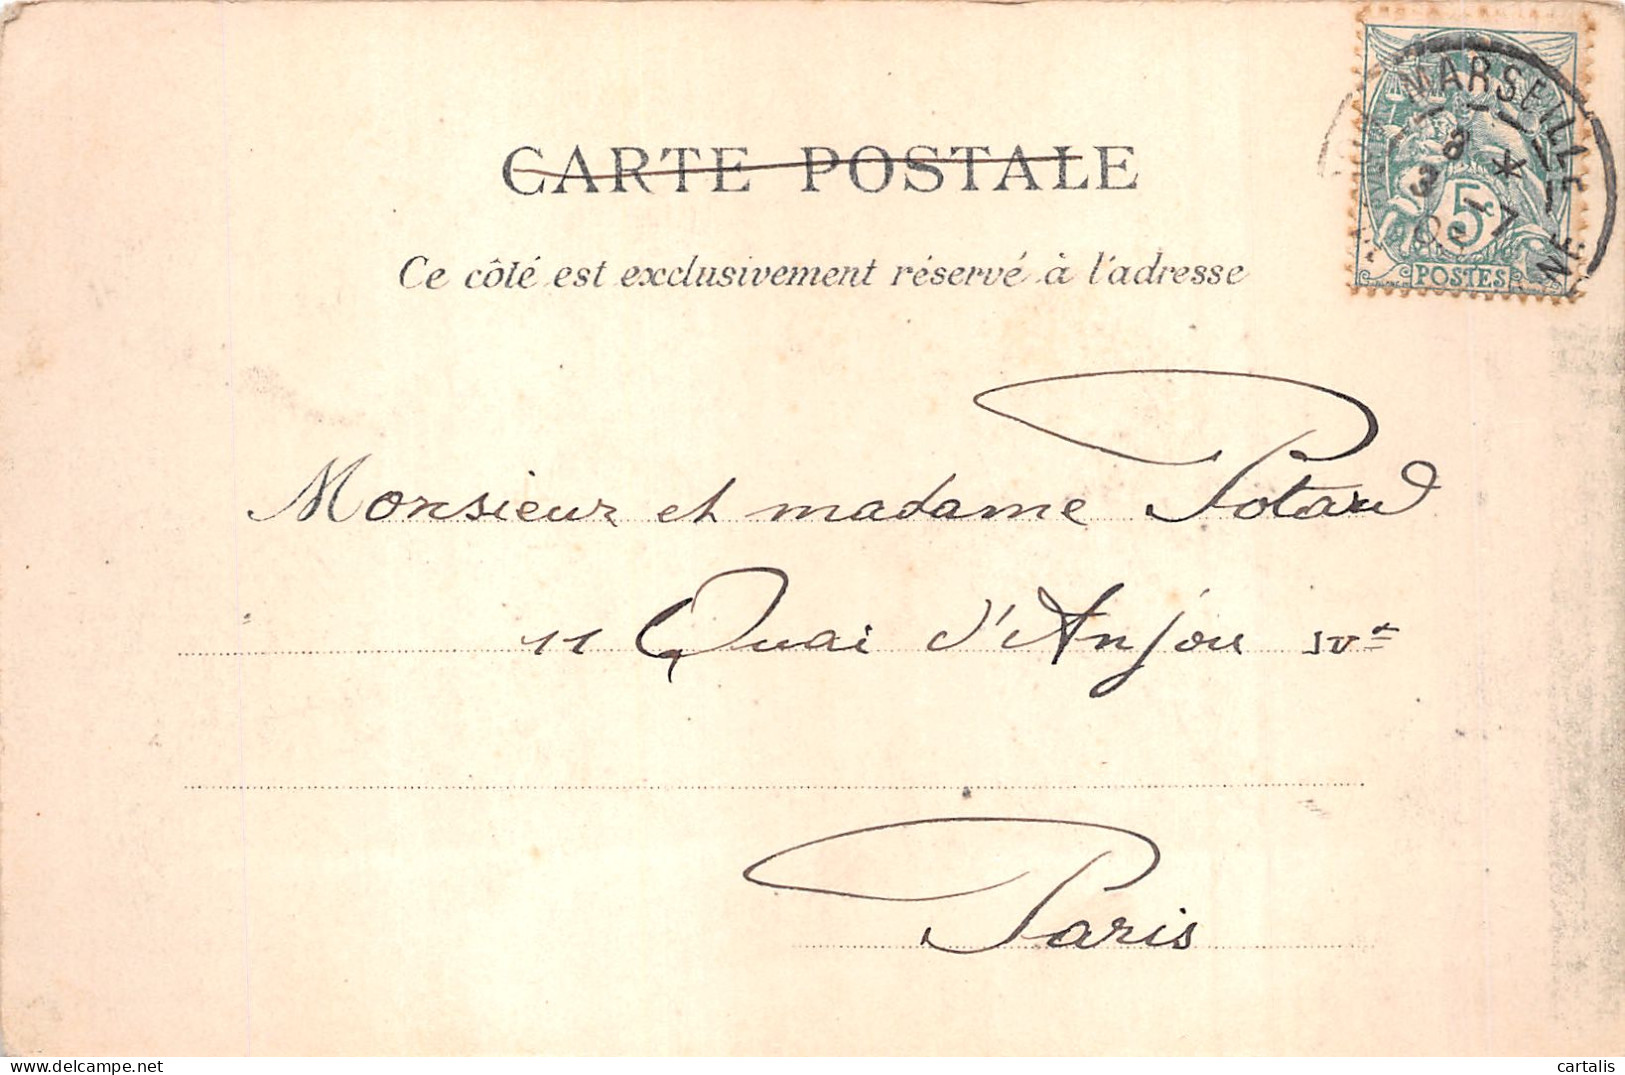 MARSEILLE
5c
POSTES
CARTE POSTALE
Ce côté est exclusivement réservé à l'adresse
Monsieur et madame Potard
11 Quai d'Anjou
Paris
cartalis